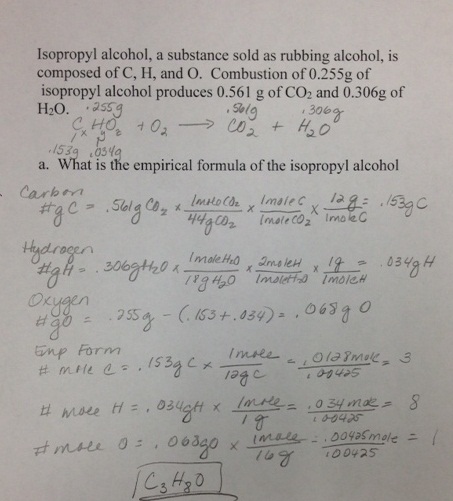 Isopropyl alcohol, a substance sold as rubbing alcohol, is
composed of C, H, and O. Combustion of 0.255g of
isopropyl alcohol produces 0.561 g of CO₂ and 0.306g of
H₂O.
.255g .561g .306g
CₓH O₂ + O₂ → CO₂ + H₂O
.153g .034g
a. What is the empirical formula of the isopropyl alcohol
Carbon
#g C = .561g CO₂ x 1mole CO₂/44g CO₂ x 1mole C/1mole CO₂ x 12g/1mole C = .153g C
Hydrogen
#g H = .306g H₂O x 1mole H₂O/18g H₂O x 2mole H/1mole H₂O x 1g/1mole H = .034g H
Oxygen
#g O = .255g - (.153 + .034) = .068g O
Emp Form
# mole C = .153g C x 1mole/12g C = .0128mole/.00425 = 3
# mole H = .034gH x 1mole/1g = .034mole/.00425 = 8
# mole O = .068gO x 1mole/16g = .00425mole/.00425 = 1
C₃H₈O